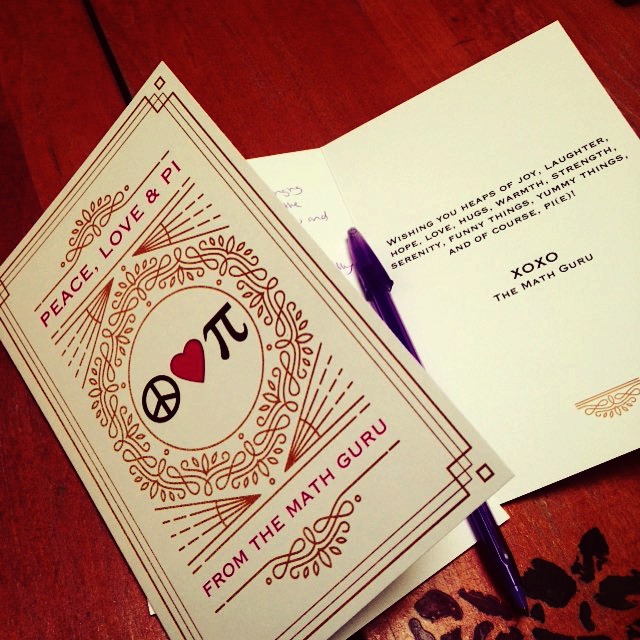 PEACE, LOVE & PI
π
FROM THE MATH GURU
the
and
WISHING YOU HEAPS OF JOY, LAUGHTER,
HOPE, LOVE, HUGS, WARMTH, STRENGTH,
SERENITY, FUNNY THINGS, YUMMY THINGS,
AND OF COURSE, PI(E)!
XOXO
THE MATH GURU